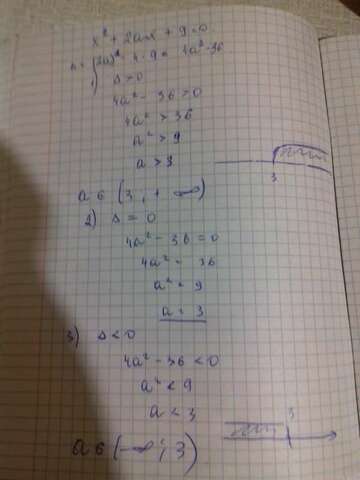 x² + 2ax + 9 = 0
(2a)² - 4·9 = 4a² - 36
1) Δ > 0
4a² - 36 > 0
4a² > 36
a² > 9
a > 3
3
a ∈ (3; +∞)
2) Δ = 0
4a² - 36 = 0
4a² = 36
a² = 9
a = 3
3) Δ < 0
4a² - 36 < 0
a² < 9
a < 3
3
a ∈ (-∞; 3)